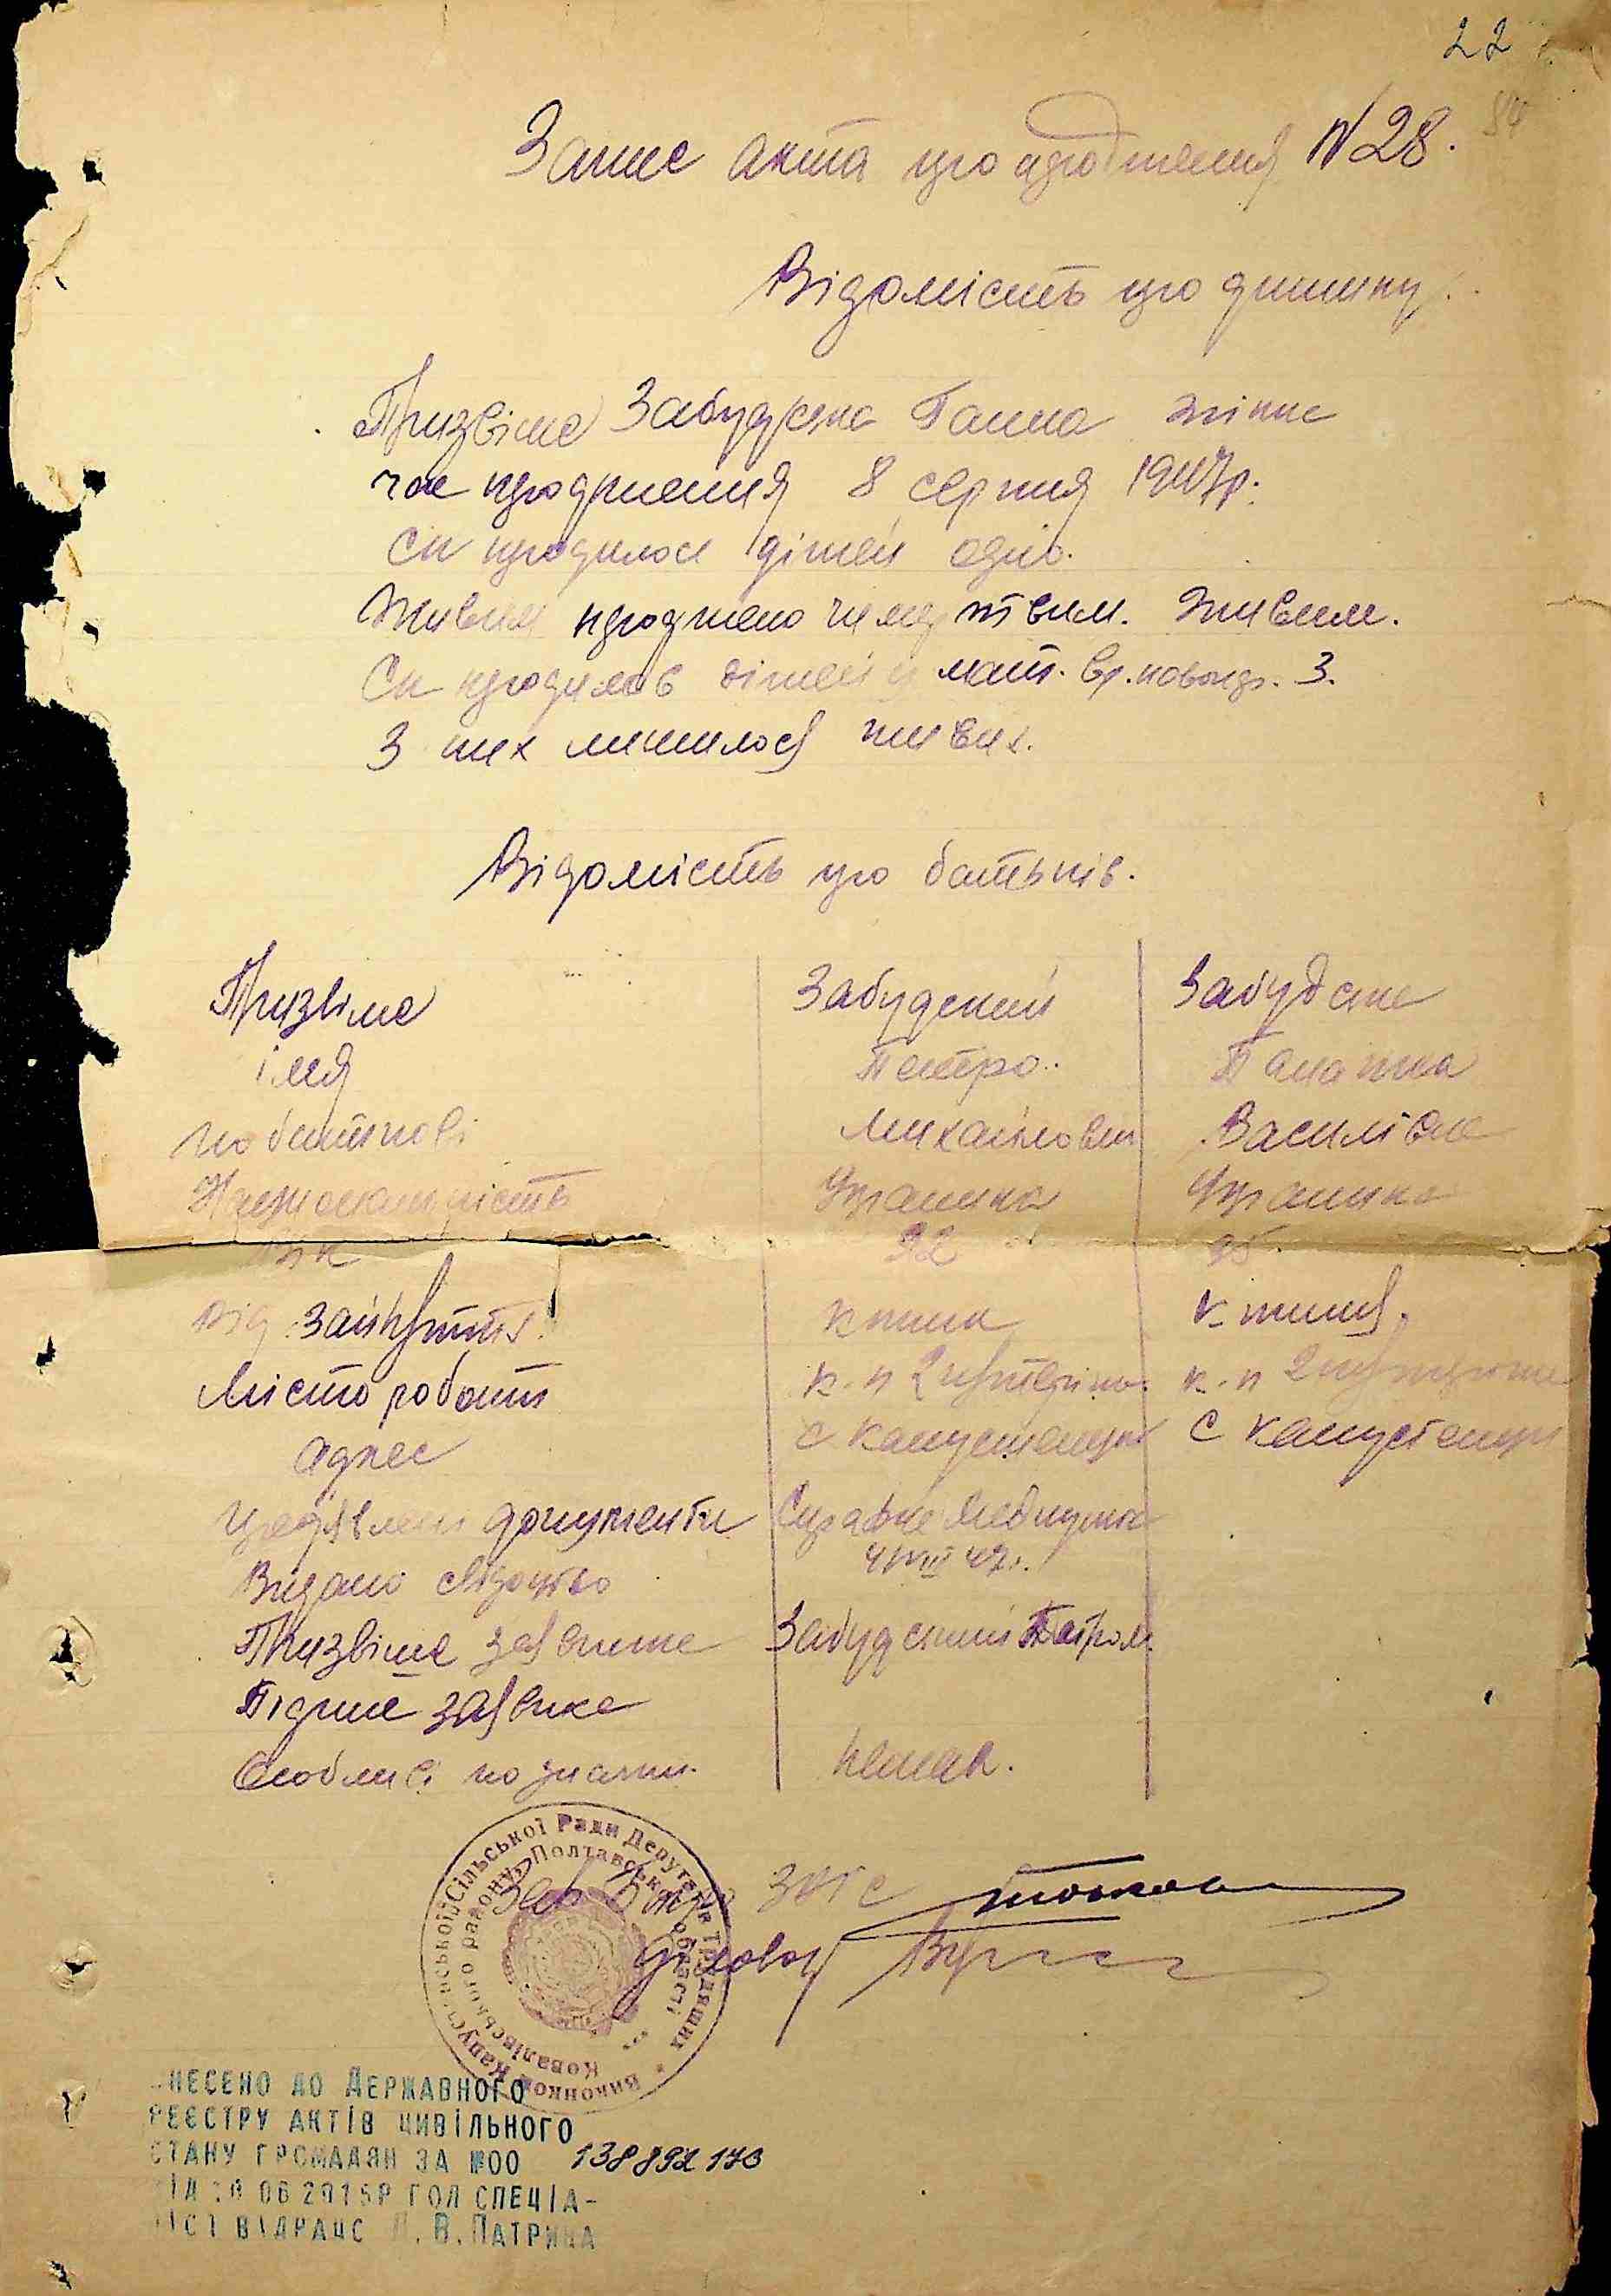 22
84
Запис акта про народження N 28.
Відомість про дитину.
Призвіще Забудська Ганна жінка
час народження 8 серпня 1947р.
Ск народилося дітей одно.
Живим народжено чи мертвим. Живим.
Ск народилось дітей у мат. вр. новонар. 3.
З них лишилося живих.
Відомість про батьків.
Призвіще Забудский Забудська
імя Петро Палажка
по батькові Михайлович Василівна
Національність Українка Українка
Вік 32 35
від заняття к
Місто роботи к-п к-п
Адрес с Капустенци с Капустенци
Предявлені документи Справка Медпункта
4/VIII 47р.
Видано свідоцтво
Призвіще заявника Забудський Петром
Підпис заявника
Особливі познатки. Немає.
Зав Бюро ЗАГС
Виконком Капустинської Сільської Ради Депутатів Трудящих *
Ковалівського району Полтавської області
НЕСЕНО ДО ДЕРЖАВНОГО
РЕЄСТРУ АКТІВ ЦИВІЛЬНОГО
СТАНУ ГРОМАДЯН ЗА №00 138892173
ІД 06 2015Р ГОЛ СПЕЦІА-
ІСТ ВІДРАЦС В. ПАТРИНА